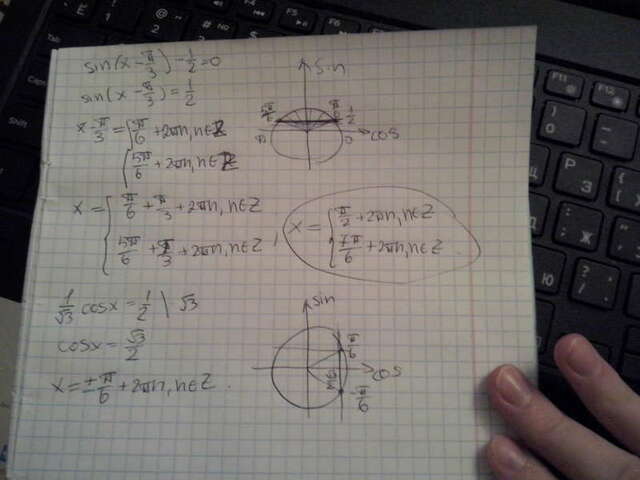 sin(x - π/3) - 1/2 = 0
sin(x - π/3) = 1/2
x - π/3 = { π/6 + 2πn, n∈Z
{ 5π/6 + 2πn, n∈Z
x = { π/6 + π/3 + 2πn, n∈Z
{ 5π/6 + π/3 + 2πn, n∈Z,
x = { π/2 + 2πn, n∈Z
{ 7π/6 + 2πn, n∈Z
sin
5π/6
π/6
1/2
cos
π
0
1/√3 cosx = 1/2 \ √3
cosx = √3/2
x = ±π/6 + 2πn, n∈Z.
sin
π/6
cos
√3/2
-π/6
F11
F12
Ж
;